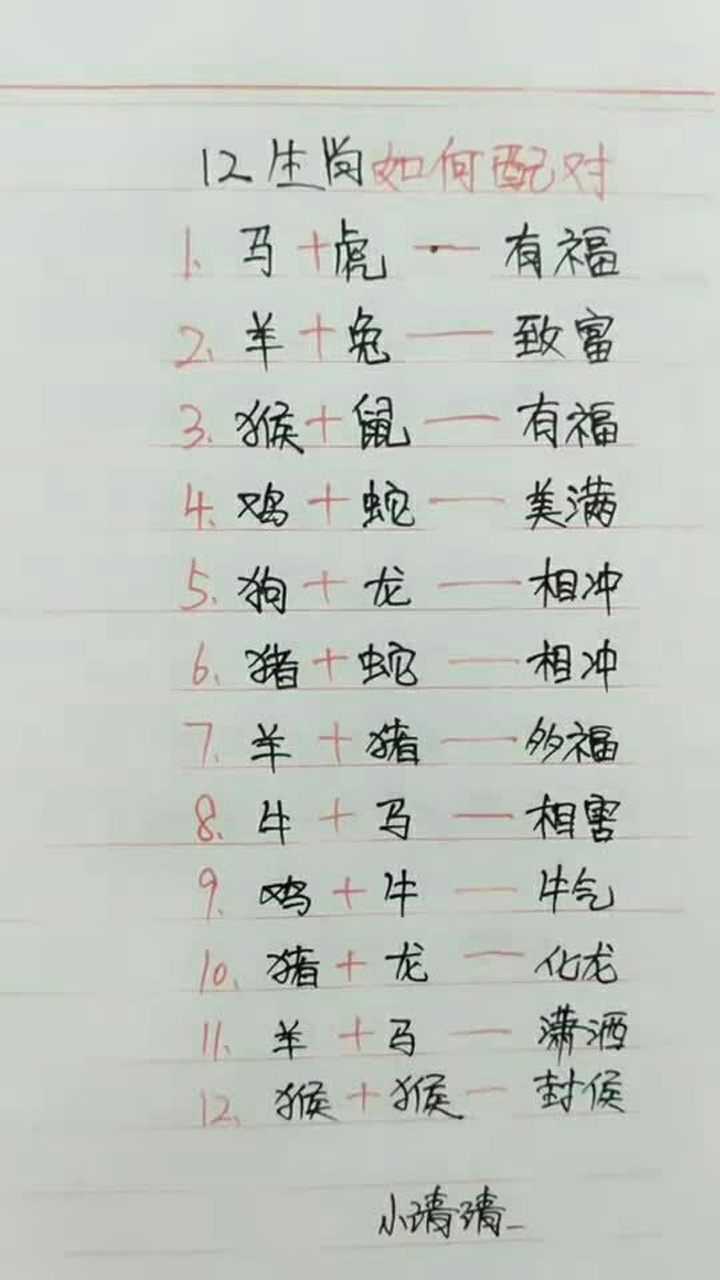 12生肖如何配对
1、马+虎一有福
2、羊+兔一致富
3、猴+鼠一有福
4、鸡+蛇一美满
5、狗+龙一相冲
6、猪+蛇一相冲
7、羊+猪一多福
8、牛+马一相害
9、鸡+牛一牛气
10、猪+龙一化龙
11、羊+马一潇洒
12、猴+猴一封侯
小